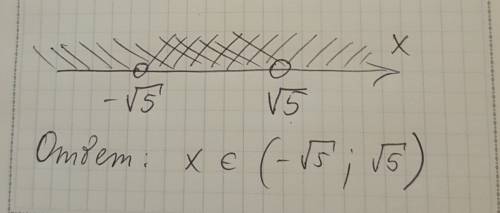 x
-√5 √5
Ответ: x ∈ (-√5; √5)